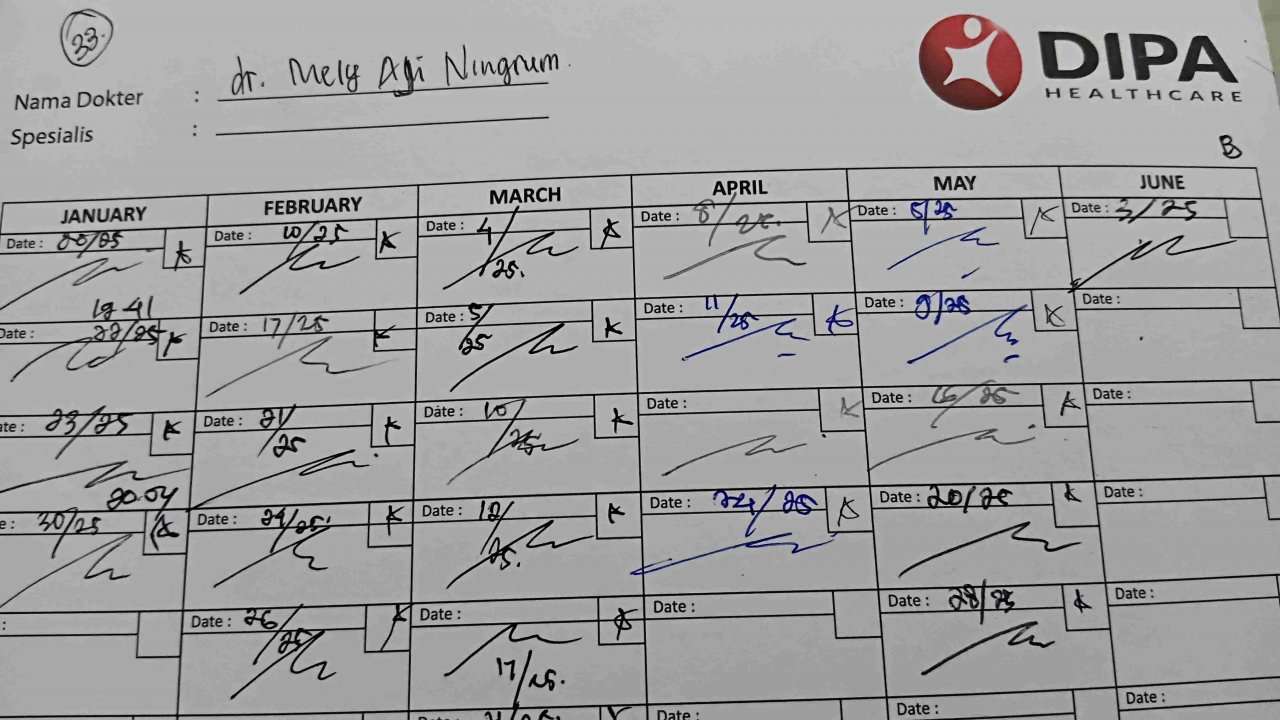 33.
DIPA
HEALTHCARE
Nama Dokter : dr. Mely Agi Ningrum.
Spesialis :
B
JANUARY FEBRUARY MARCH APRIL MAY JUNE
Date : Date : 10/25 K Date : 4/25. K Date : 8/25. K Date : 5/25 K Date : 3/25
19-41
Date : 22/25 K Date : 17/25 K Date : 5/25 K Date : 11/25 K Date : 9/25 K Date :
ate : 23/25 K Date : 21/25 K Date : 10/25 K Date : K Date : 16/25 K Date :
20.04
e : 30/25 K Date : 24/25 K Date : 12/25. K Date : 24/25 K Date : 20/25 K Date :
: Date : 26/25 K Date : 17/25. K Date : Date : 28/25 K Date :
Date : Date :